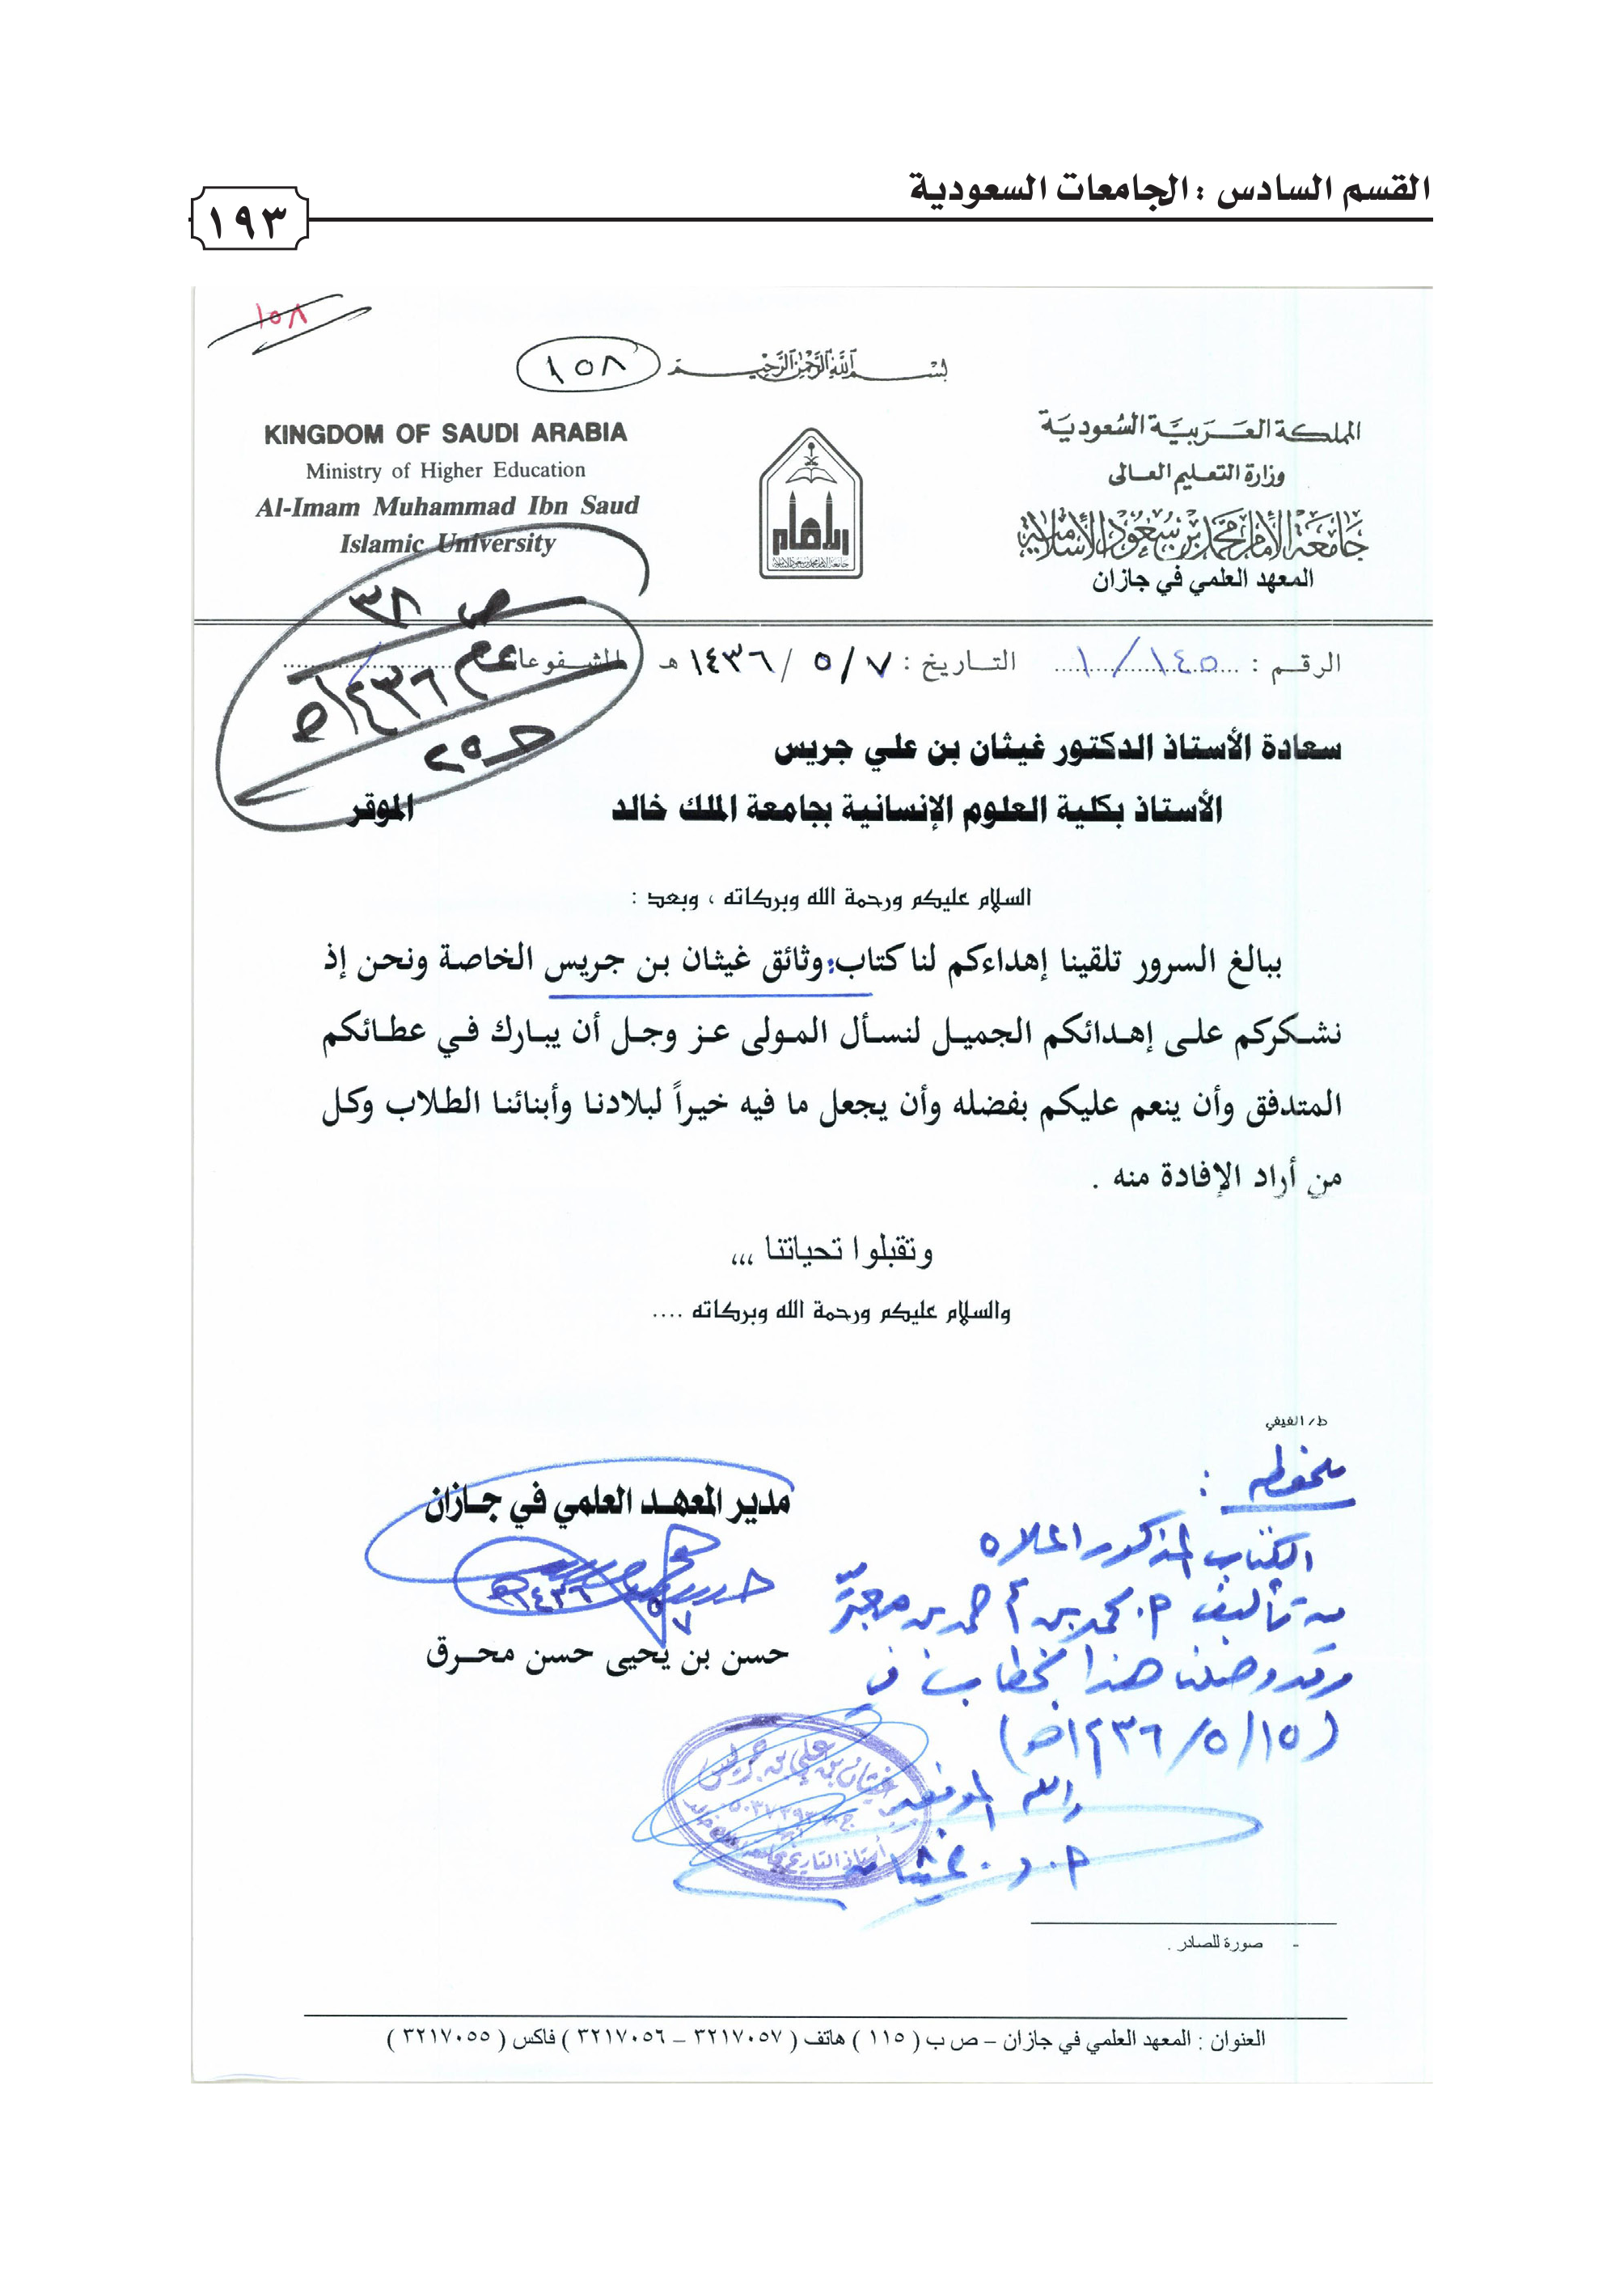 القسم السادس : الجامعات السعودية
١٩٣
١٥٨
بسم الله الرحمن الرحيم
١٥٨
المملكة العربية السعودية
وزارة التعليم العالى
جامعة الإمام محمد بن سعود الإسلامية
المعهد العلمي في جازان
KINGDOM OF SAUDI ARABIA
Ministry of Higher Education
Al-Imam Muhammad Ibn Saud
Islamic University
ص ٣٨
عام
١٤٣٦هـ
حـ ٢٥
الرقم : ١/١٤٥ التاريخ : ٧ / ٥ / ١٤٣٦ هـ المشفوعات
سعادة الأستاذ الدكتور غيثان بن علي جريس
الأستاذ بكلية العلوم الإنسانية بجامعة الملك خالد الموقر
السلام عليكم ورحمة الله وبركاته ، وبعد :
ببالغ السرور تلقينا إهداءكم لنا كتاب: وثائق غيثان بن جريس الخاصة ونحن إذ
نشكركم على إهدائكم الجميل لنسأل المولى عز وجل أن يبارك في عطائكم
المتدفق وأن ينعم عليكم بفضله وأن يجعل ما فيه خيراً لبلادنا وأبنائنا الطلاب وكل
من أراد الإفادة منه .
وتقبلوا تحياتنا ,,,
والسلام عليكم ورحمة الله وبركاته ....
ط/ الفيفي
مدير المعهد العلمي في جازان
١٤٣٦هـ
حسن بن يحيى حسن محرق
ملحوظه :
الكتاب المذكور اعلاه
من تأليف م. محمد بن أحمد بن معبر
وقد وصلنا هذا الخطاب في
(١٥/٥/١٤٣٦هـ)
والله الموفق
أ.د. غيثان
غيثان بن علي بن جريس
أستاذ التاريخ
- صورة للصادر .
العنوان : المعهد العلمي في جازان – ص ب ( ١١٥ ) هاتف ( ٣٢١٧٠٥٧ – ٣٢١٧٠٥٦ ) فاكس ( ٣٢١٧٠٥٥ )